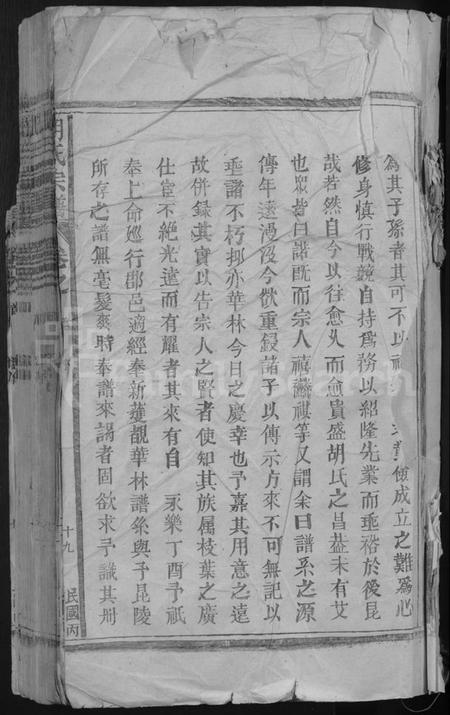 為其子孫者其可不以祖
業傾成立之難爲心
修身慎行戰兢自持爲務以紹隆先業而垂裕於後昆
哉若然自今以往愈久而愈貴盛胡氏之昌葢未有艾
也眾皆曰諾既而宗人禧麟祺等又謂余曰譜系之源
傳年遠漫沒今欲重鋟諸子以傳示方來不可無記以
垂諸不朽抑亦華林今日之慶幸也予嘉其用意之遠
故併録其實以告宗人之賢者使知其族属枝葉之廣
仕宦不絶光遠而有耀者其來有自 永樂丁酉予祇
奉上命廵行郡邑適經奉新獲覩華林譜系與予昆陵
所存之譜無毫髮爽時奉譜來謁者固欲求予識其卌
胡氏宗譜
卷之
十九
民國丙